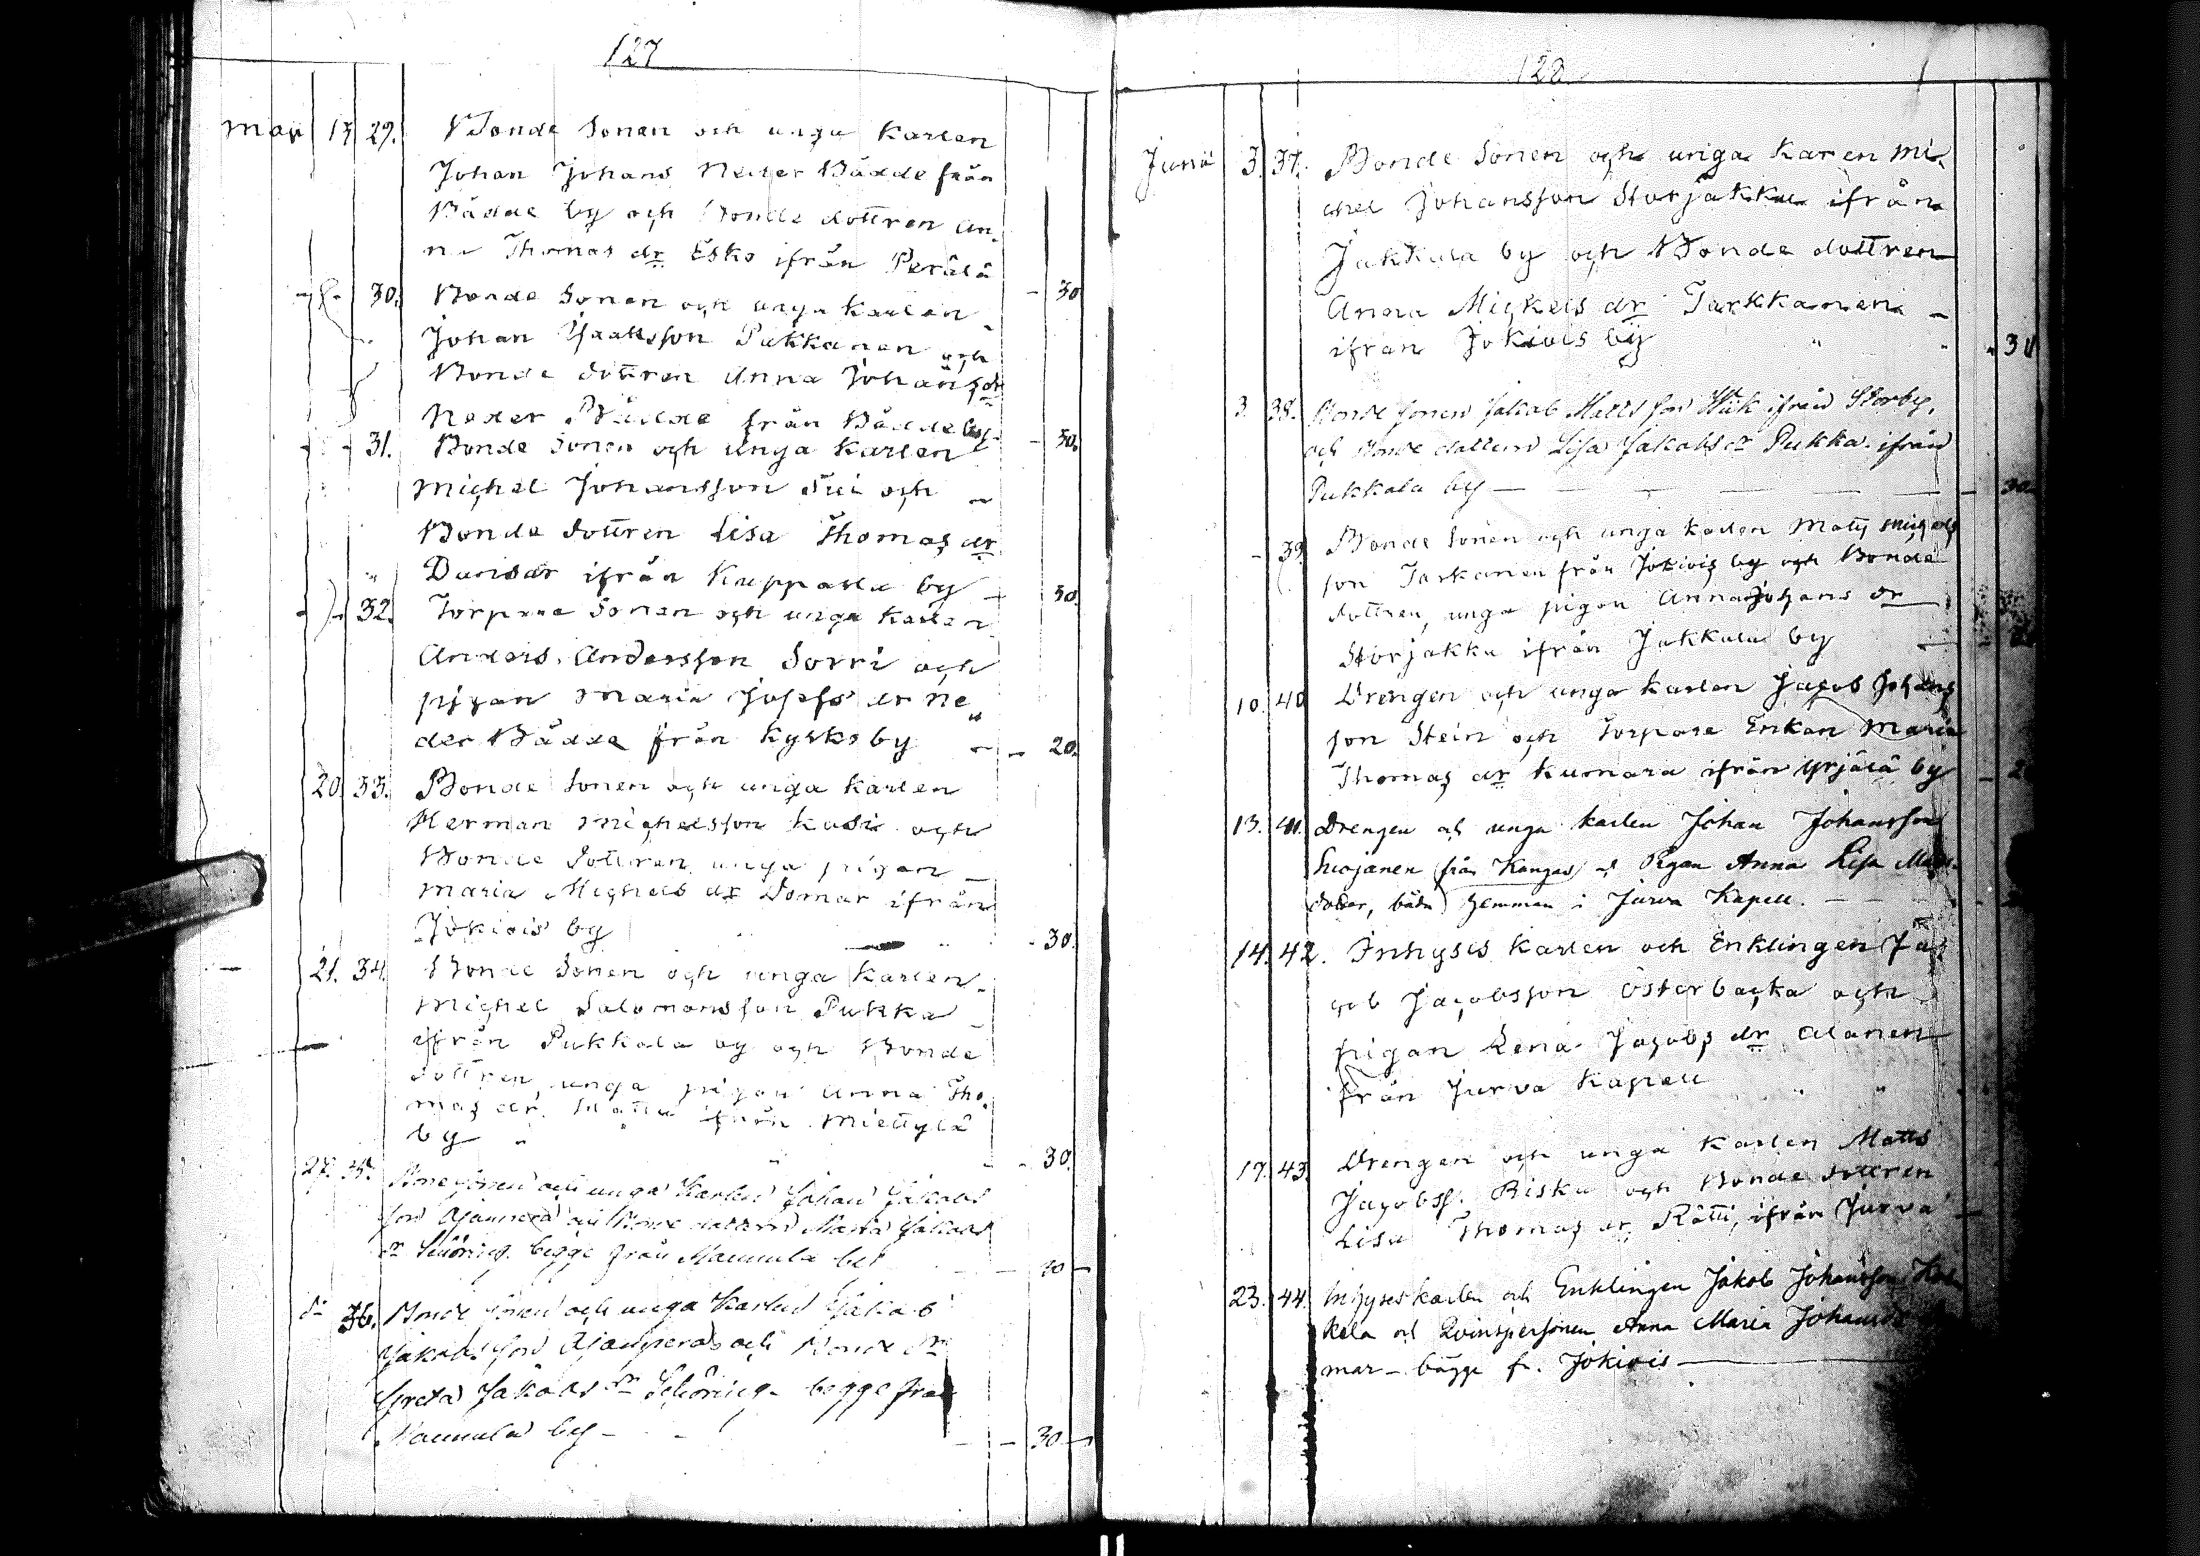 127
Maii 13 29. Bonde Sonen och unga Karlen
Johan Johans Neder Bådde från
Bådde by och Bonde dottren An,
na Thomas dr Esko ifrån Perälä - 30
30. Bonde Sonen och unga Karlen
Johan Isaaksson Pukkanen och
Bonde dottren Anna Johans dr
Neder Bådde från Bådde by - 30.
31. Bonde Sonen och unga Karlen
Michel Johansson och
Bonde dottren Lisa Thomas dr
ifrån Kuppaala by - 30.
32. Torpare Sonen och unga Karlen
Anders Andersson Sorri och
pigan Maria Josefs dr Ne,,
der Bådde från Kyrksby - 20.
20. 33. Bonde Sonen och unga Karlen
Herman Michelsson Kusi och
Bonde dottren unga pigan
Maria Michels dr Domar ifrån
Jokivis by - 30.
21. 34. Bonde Sonen och unga Karlen
Michel Salomonsson Pukka
ifrån Pukkala by och Bonde
dottren, unga pigan Anna Tho,
mas dr. ifrån Miettylä
by - 30.
27. 35. Bondesonen och unga Karlen Johan Jakobs
son och Bonde dottren Maria Jakobs
dr begge från Maunula by - 30 -
do 36. Bonde sonen och unga Karlen Jakob
Jakobsson och Bonde dr
Greta Jakobs dr begge från
Maunula by - 30 -
128
Junii 3. 37. Bonde Sonen och unga Karen Mi,
chel Johansson Storjakku ifrån
Jakkula by och Bonde dottren
Anna Michels dr Tarkkanen -
ifrån Jokivis by " " 30
3 38. Bonde sonen Jakob Matts son ifrån Storby,
och Bonde dottren Lisa Jakobs dr Pukka ifrån
Pukkala by - 30
- 39. Bonde Sonen och unga Karlen Matts Michels
son Tarkanen från Jokivis by och Bonde
dottren, unga pigan Anna Johans dr
Storjakku ifrån Jakkula by
10. 40 Drengen och unga Karlen Jacob Johans
son Stein och Torpare Enkan Maria
Thomas dr Kumara ifrån Yrjälä by
13. 41. Drengen och unga karlen Johan Johansson
(från Kangas) och Pigan Anna Lisa Matts
doter, båda hemman i Jurva Kapell.
14. 42. Inhyses Karlen och Enklingen Ja,
cob Jacobsson Österbacka och
pigan Lena Jacobs dr Alanen
från Jurva Kapell " "
17. 43. Drengen och unga Karlen Matts
Jacobss. Risku och Bonde dottren
Lisa Thomas dr Rätti, ifrån Jurva
23. 44. Inhyseskarlen och Enklingen Jakob Johansson
kola och Qvinspersonen Anna Maria Johansdr
mar - bägge fr. Jokivis